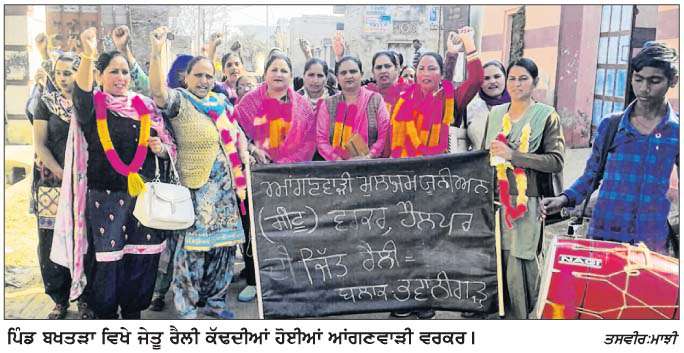 ਆਂਗਣਵਾੜੀ ਮੁਲਾਜ਼ਮ ਯੂਨੀਅਨ
(ਸੀਟੂ) ਵਰਕਰ, ਹੈਲਪਰ
ਜਿੱਤ ਰੈਲੀ =
ਬਲਾਕ ਭਵਾਨੀਗੜ੍ਹ
NAGI
ਪਿੰਡ ਬਖਤੜਾ ਵਿਖੇ ਜੇਤੂ ਰੈਲੀ ਕੱਢਦੀਆਂ ਹੋਈਆਂ ਆਂਗਣਵਾੜੀ ਵਰਕਰ।
ਤਸਵੀਰ:ਮਾਝੀ